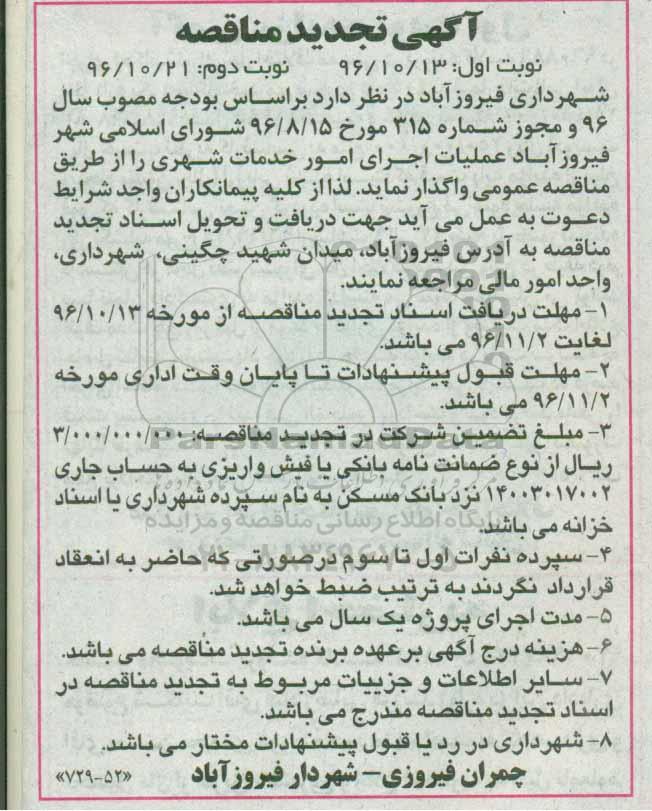 آگهی تجدید مناقصه
نوبت اول: ۹۶/۱۰/۱۳ نوبت دوم: ۹۶/۱۰/۲۱
شهرداری فیروزآباد در نظر دارد براساس بودجه مصوب سال
۹۶ و مجوز شماره ۳۱۵ مورخ ۹۶/۸/۱۵ شورای اسلامی شهر
فیروزآباد عملیات اجرای امور خدمات شهری را از طریق
مناقصه عمومی واگذار نماید. لذا از کلیه پیمانکاران واجد شرایط
دعوت به عمل می آید جهت دریافت و تحویل اسناد تجدید
مناقصه به آدرس فیروزآباد، میدان شهید چگینی، شهرداری،
واحد امور مالی مراجعه نمایند.
۱- مهلت دریافت اسناد تجدید مناقصه از مورخه ۹۶/۱۰/۱۳
لغایت ۹۶/۱۱/۲ می باشد.
۲- مهلت قبول پیشنهادات تا پایان وقت اداری مورخه
۹۶/۱۱/۲ می باشد.
۳- مبلغ تضمین شرکت در تجدید مناقصه: ۳/۰۰۰/۰۰۰/۰۰۰
ریال از نوع ضمانت نامه بانکی یا فیش واریزی به حساب جاری
۱۴۰۰۳۰۱۷۰۰۲ نزد بانک مسکن به نام سپرده شهرداری یا اسناد
خزانه می باشد.
۴- سپرده نفرات اول تا سوم درصورتی که حاضر به انعقاد
قرارداد نگردند به ترتیب ضبط خواهد شد.
۵- مدت اجرای پروژه یک سال می باشد.
۶- هزینه درج آگهی برعهده برنده تجدید مناقصه می باشد.
۷- سایر اطلاعات و جزییات مربوط به تجدید مناقصه در
اسناد تجدید مناقصه مندرج می باشد.
۸- شهرداری در رد یا قبول پیشنهادات مختار می باشد.
چمران فیروزی- شهردار فیروزآباد «۷۲۹-۵۲»
ParsNamadData
پایگاه اطلاع رسانی مناقصه و مزایده